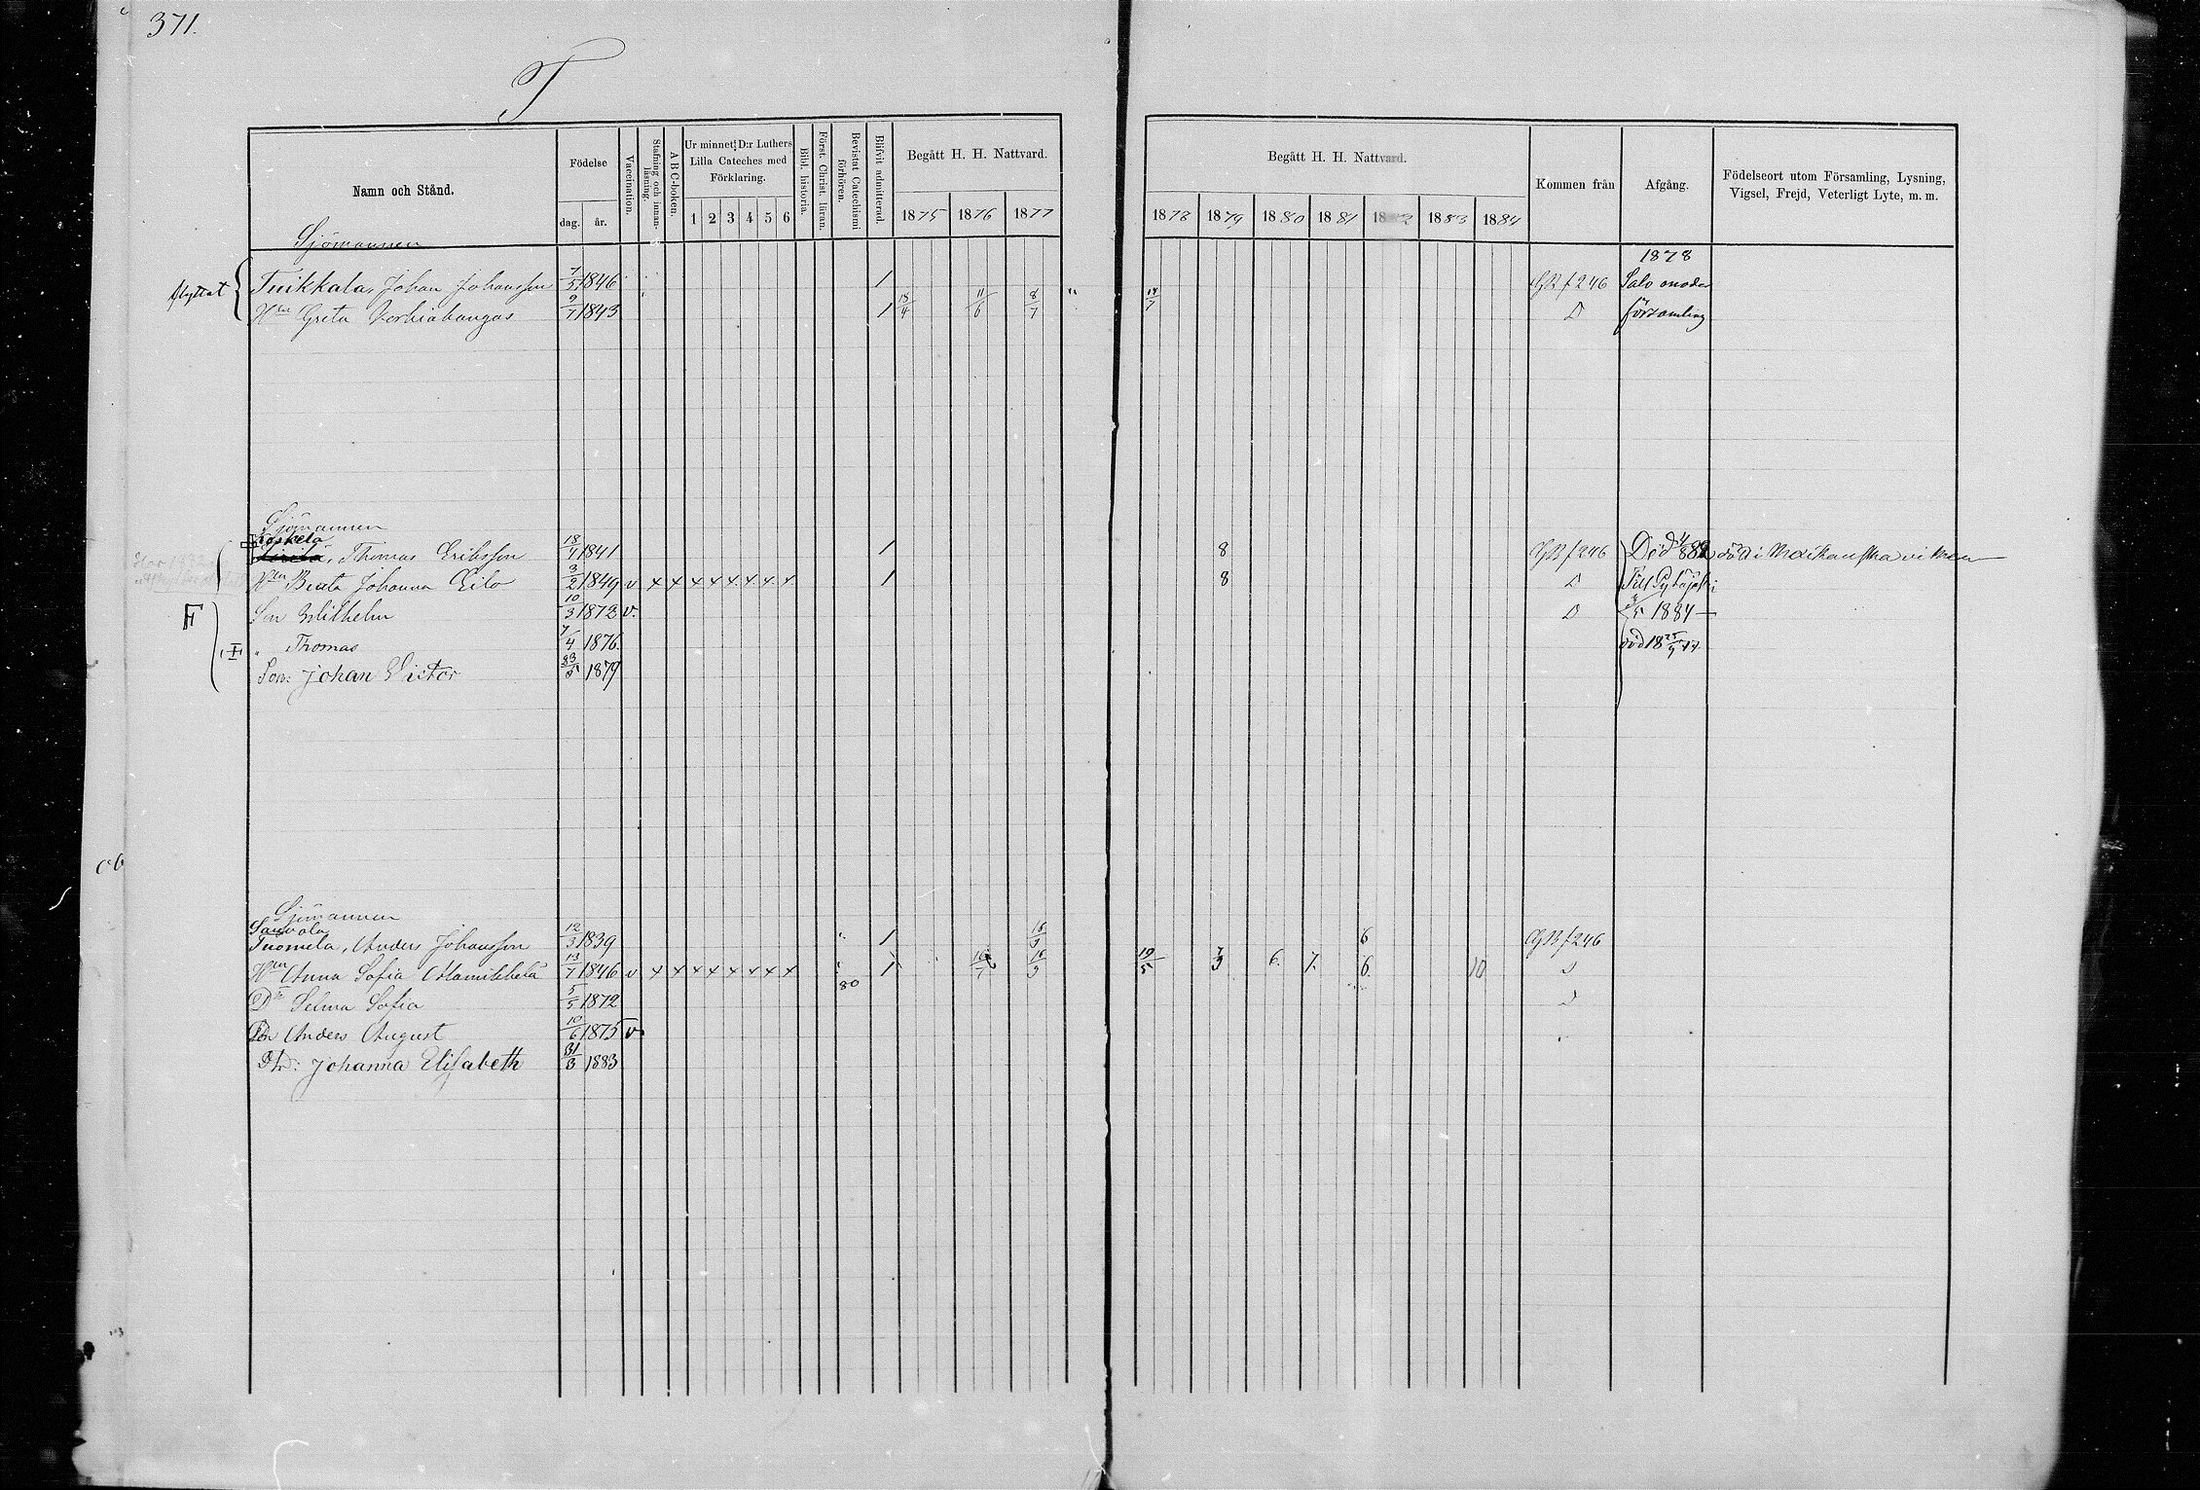 371.
T
Namn och Stånd.
Födelse
dag. år.
Vaccination.
Stafning och innan-läsning.
A B C-boken.
Ur minnet: D:r Luthers Lilla Cateches med Förklaring.
1 2 3 4 5 6
Bibl. historia.
Först. Christ. läran.
Bevistat Catechismi förhören.
Blifvit admitterad.
Begått H. H. Nattvard.
1875 1876 1877
Begått H. H. Nattvard.
1878 1879 1880 1881 1882 1883 1884
Kommen från
Afgång.
Födelseort utom Församling, Lysning, Vigsel, Frejd, Veterligt Lyte, m. m.
Sjömannen
1878
flyttat Tuikkala, Johan Johansson 7/5 1846 1 GB f 246 Salo
Hen Greta 9/7 1843 1 15/4 11/6 8/7 14/7 D församling
Sjömannen
Koskela
Thomas Eriksson 18/4 1841 1 8 GB f 246 Död död i
Hen Beata Johanna Eilo 3/2 1849 v x x x x x x x x 1 8 D Till Pyhäjoki
F Son Wilhelm 10/3 1872 v. D 1884
" Thomas 7/4 1876. död
Son: Johan Victor 1879
Sjömannen
Tuomela, Anders Johansson 12/3 1839 1 6 GB f 246
Hen Anna Sofia 13/7 1846 v x x x x x x x x 1 19/5 6 7. 6. 10
80
Dr Selma Sofia 5/5 1872
Son Anders August 10/6 1875 v
Dtr: Johanna Elisabeth 31/3 1883